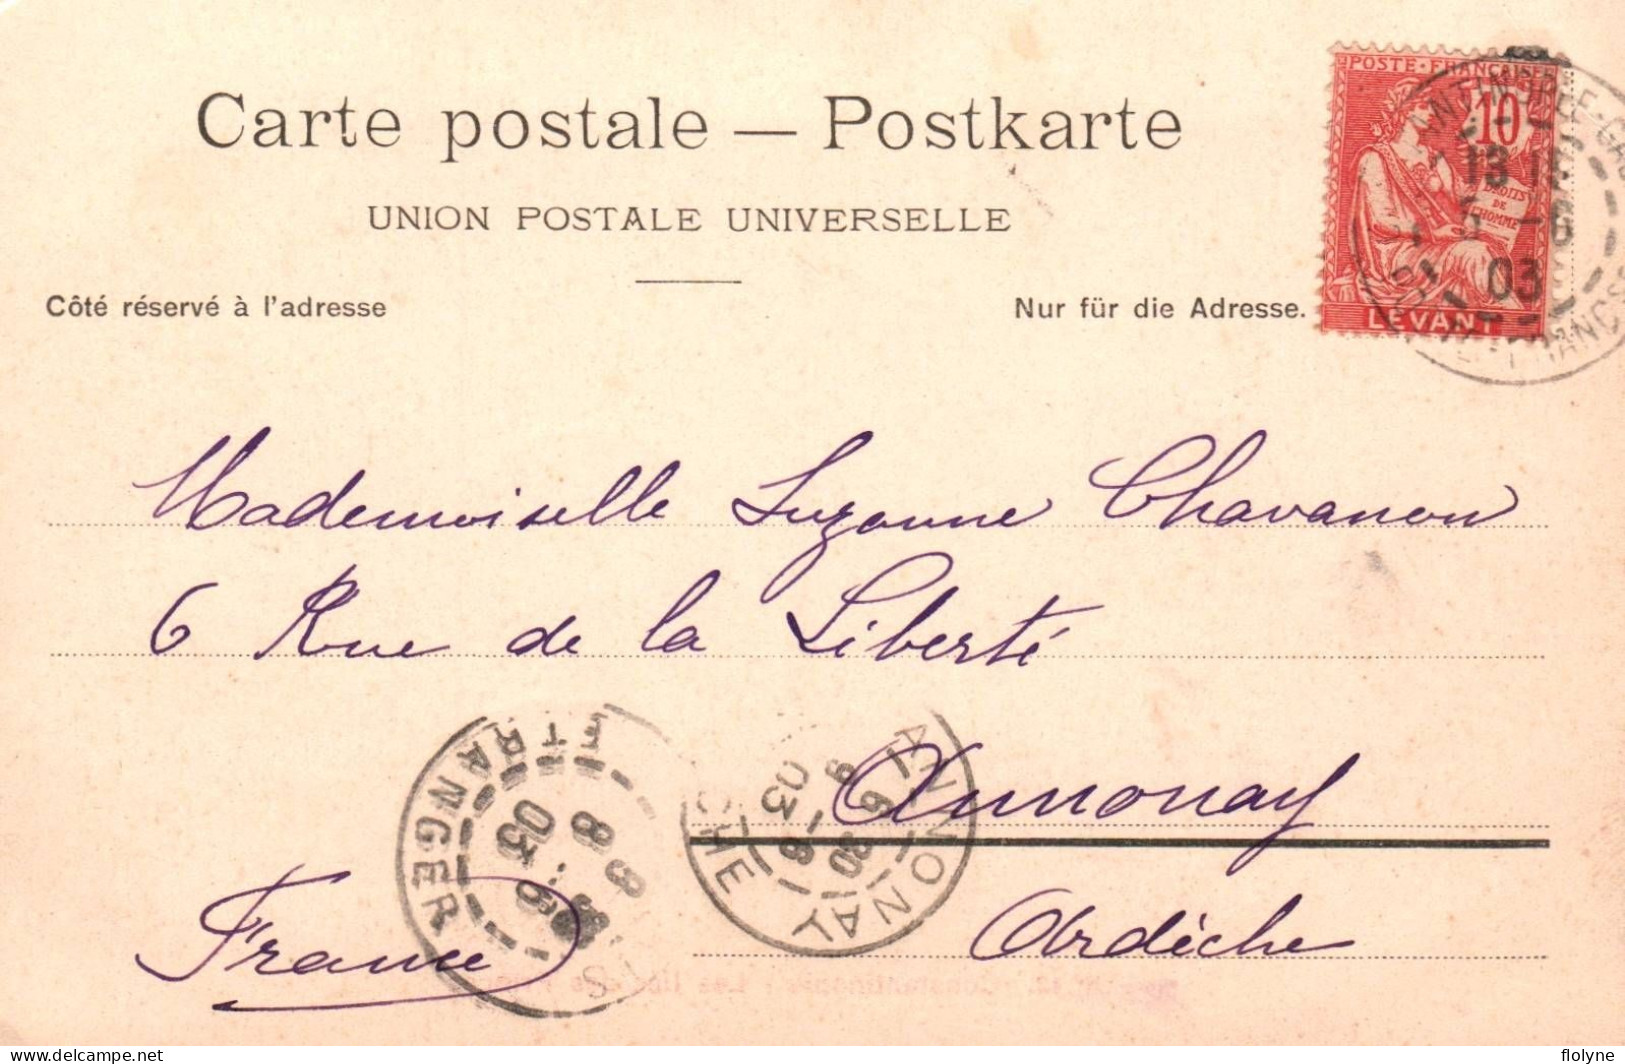 Carte postale — Postkarte
UNION POSTALE UNIVERSELLE
Côté réservé à l'adresse
Nur für die Adresse.
POSTE FRANÇAISE
10
DROITS
DE
L'HOMME
LEVANT
13
-6
03
Mademoiselle Suzanne Chavanon
6 Rue de la Liberté
Annonay
Ardèche
France
ETRANGER
03
ANNONAY
03
flolyne